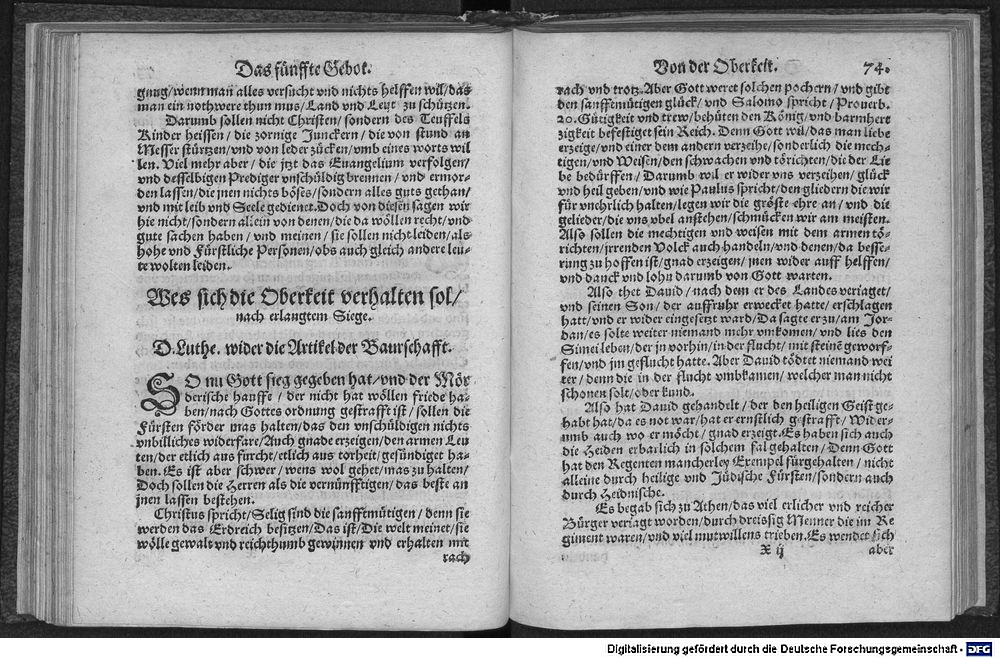 Das fünffte Gebot.
gnug/wenn man alles versucht vnd nichts helffen wil/das
man ein nothwere thun mus/Land vnd Leut zu schützen.
Darumb sollen nicht Christen/sondern des Teuffels
Kinder heissen/die zornige Junckern/die von stund an
Messer stürtzen/vnd von leder zücken/vmb eines worts wil
len. Viel mehr aber/die jtzt das Euangelium verfolgen/
vnd desselbigen Prediger vnschüldig brennen/vnd ermor-
den lassen/die jnen nichts böses/sondern alles guts gethan/
vnd mit leib vnd Seele gedienet. Doch von diesen sagen wir
hie nicht/sondern allein von denen/die da wöllen recht/vnd
gute sachen haben/vnd meinen/sie sollen nicht leiden/als
hohe vnd Fürstliche Personen/obs auch gleich andere leu-
te wolten leiden.
Wes sich die Oberkeit verhalten sol/
nach erlangtem Siege.
D. Luthe. wider die Artikel der Baurschafft.
SO nu Gott sieg gegeben hat/vnd der Mör
derische hauffe/der nicht hat wöllen friede ha-
ben/nach Gottes ordnung gestrafft ist/sollen die
Fürsten förder mas halten/das den vnschüldigen nichts
vnbilliches widerfare/Auch gnade erzeigen/den armen Leu
ten/der etlich aus furcht/etlich aus torheit/gesündiget ha-
ben. Es ist aber schwer/wens wol gehet/mas zu halten/
Doch sollen die Herren als die vernünfftigen/das beste an
jnen lassen bestehen.
Christus spricht/Selig sind die sanfftmütigen/denn sie
werden das Erdreich besitzen/Das ist/Die welt meinet/sie
wölle gewalt vnd reichthumb gewinnen vnd erhalten mit
rach
Von der Oberkeit. 74.
rach vnd trotz. Aber Gott weret solchen pochern/vnd gibt
den sanffemütigen glück/vnd Salomo spricht/Prouerb.
20. Gütigkeit vnd trew/behüten den König/vnd barmhert
zigkeit befestiget sein Reich. Denn Gott wil/das man liebe
erzeige/vnd einer dem andern verzeihe/sonderlich die mech-
tigen/vnd Weisen/den schwachen vnd törichten/die der Lie
be bedürffen/Darumb wil er wider vns verzeihen/glück
vnd heil geben/vnd wie Paulus spricht/den gliedern die wir
für vnehrlich halten/legen wir die gröste ehre an/vnd die
gelieder/die vns vbel anstehen/schmücken wir am meisten.
Also sollen die mechtigen vnd weisen mit dem armen tö-
richten/jrrenden Volck auch handeln/vnd denen/da besse-
rung zu hoffen ist/gnad erzeigen/jnen wider auff helffen/
vnd danck vnd lohn darumb von Gott warten.
Also thet Dauid/nach dem er des Landes veriaget/
vnd seinen Son/der auffruhr erwecket hatte/erschlagen
hatt/vnd er wider eingesetzt ward/Da sagte er zu/am Jor-
dan/es solte weiter niemand mehr vmkomen/vnd lies den
Simei leben/der jn vorhin/in der flucht/mit steine geworf-
fen/vnd jm geflucht hatte. Aber Dauid tödtet niemand wei
ter/denn die in der flucht vmbkamen/welcher man nicht
schonen solt/oder kund.
Also hat Dauid gehandelt/der den heiligen Geist ge-
habt hat/da es not war/hat er ernstlich gestrafft/Wider-
umb auch wo er möcht/gnad erzeigt. Es haben sich auch
die Heiden erbarlich in solchem fal gehalten/Denn Gott
hat den Regenten mancherley Exempel fürgehalten/nicht
alleine durch heilige vnd Jüdische Fürsten/sondern auch
durch Heidnische.
Es begab sich zu Athen/das viel erlicher vnd reicher
Bürger veriagt worden/durch dreissig Menner die im Re
giment waren/vnd viel mutwillens trieben. Es wendet sich
X ij aber
Digitalisierung gefördert durch die Deutsche Forschungsgemeinschaft - DFG